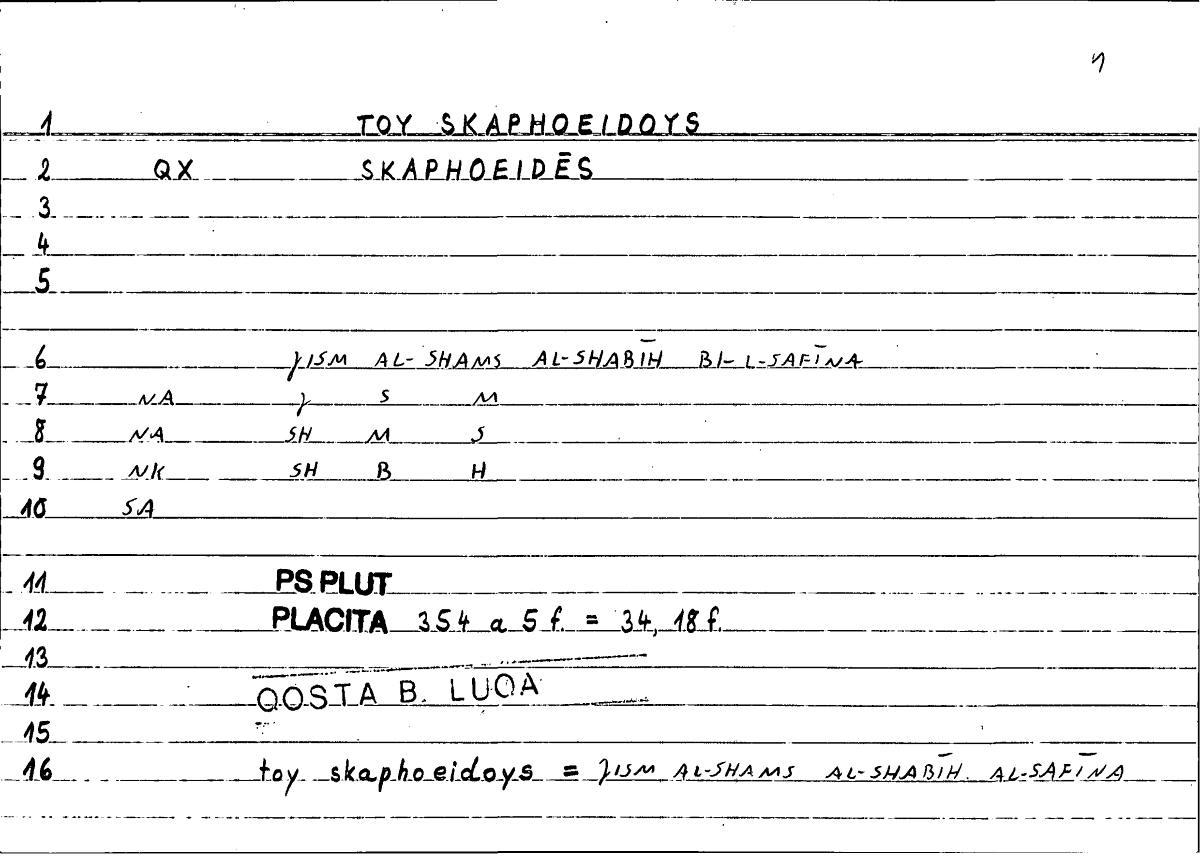 1 TOY SKAPHOEIDOYS
2 QX SKAPHOEIDĒS
3
4
5
6 ɣISM AL-SHAMS AL-SHABĪH BI-L-SAFĪNA
7 NA ɣ S M
8 NA SH M S
9 NK SH B H
10 SA
11 PS PLUT
12 PLACITA 354 a 5 f. = 34, 18 f.
13
14 QOSTA B. LUQA
15
16 toy skaphoeidoys = ɣISM AL-SHAMS AL-SHABĪH AL-SAFĪNA